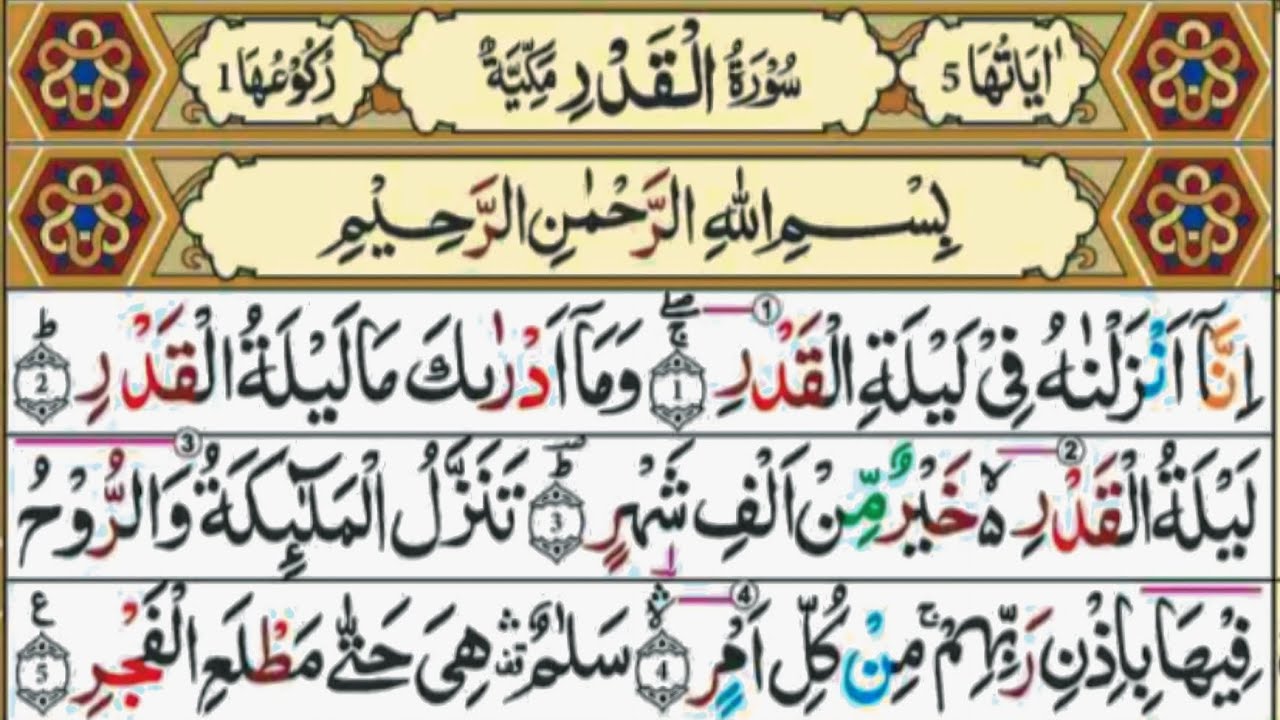 اٰيَاتُهَا 5 سُوْرَةُ الْقَدْرِ مَكِّيَّةٌ رُكُوْعُهَا 1
بِسْمِ اللّٰهِ الرَّحْمٰنِ الرَّحِيْمِ
اِنَّاۤ اَنْزَلْنٰهُ فِيْ لَيْلَةِ الْقَدْرِ ۚۖ 1 وَمَاۤ اَدْرٰىكَ مَا لَيْلَةُ الْقَدْرِ ؕ 2
لَيْلَةُ الْقَدْرِ ۙ۬ خَيْرٌ مِّنْ اَلْفِ شَهْرٍ ؕؔ 3 تَنَزَّلُ الْمَلٰٓئِكَةُ وَالرُّوْحُ
فِيْهَا بِاِذْنِ رَبِّهِمْ ۚ مِنْ كُلِّ اَمْرٍ ۙۛ 4 سَلٰمٌ ۛ۫ هِيَ حَتّٰى مَطْلَعِ الْفَجْرِ ع 5